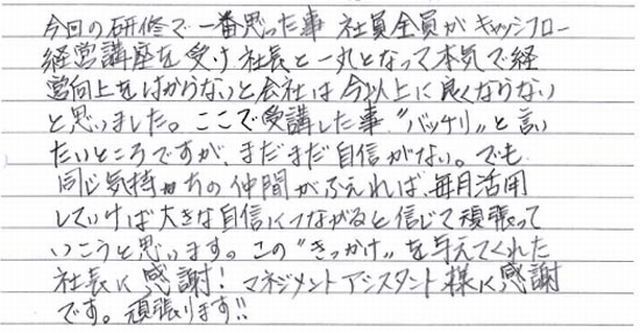 今回の研修で一番思った事 社員全員がキャッシュフロー
経営講座を受け社長と一丸となって本気で経
営向上をはからないと会社は今以上に良くならない
と思いました。ここで受講した事〝バッチリ〟と言い
たいところですが、まだまだ自信がない。でも
同じ気持ちの仲間がふえれば、毎月活用
していけば大きな自信につながると信じて頑張って
いこうと思います。この〝きっかけ〟を与えてくれた
社長に感謝! マネジメントアシスタント様に感謝
です。頑張ります!!